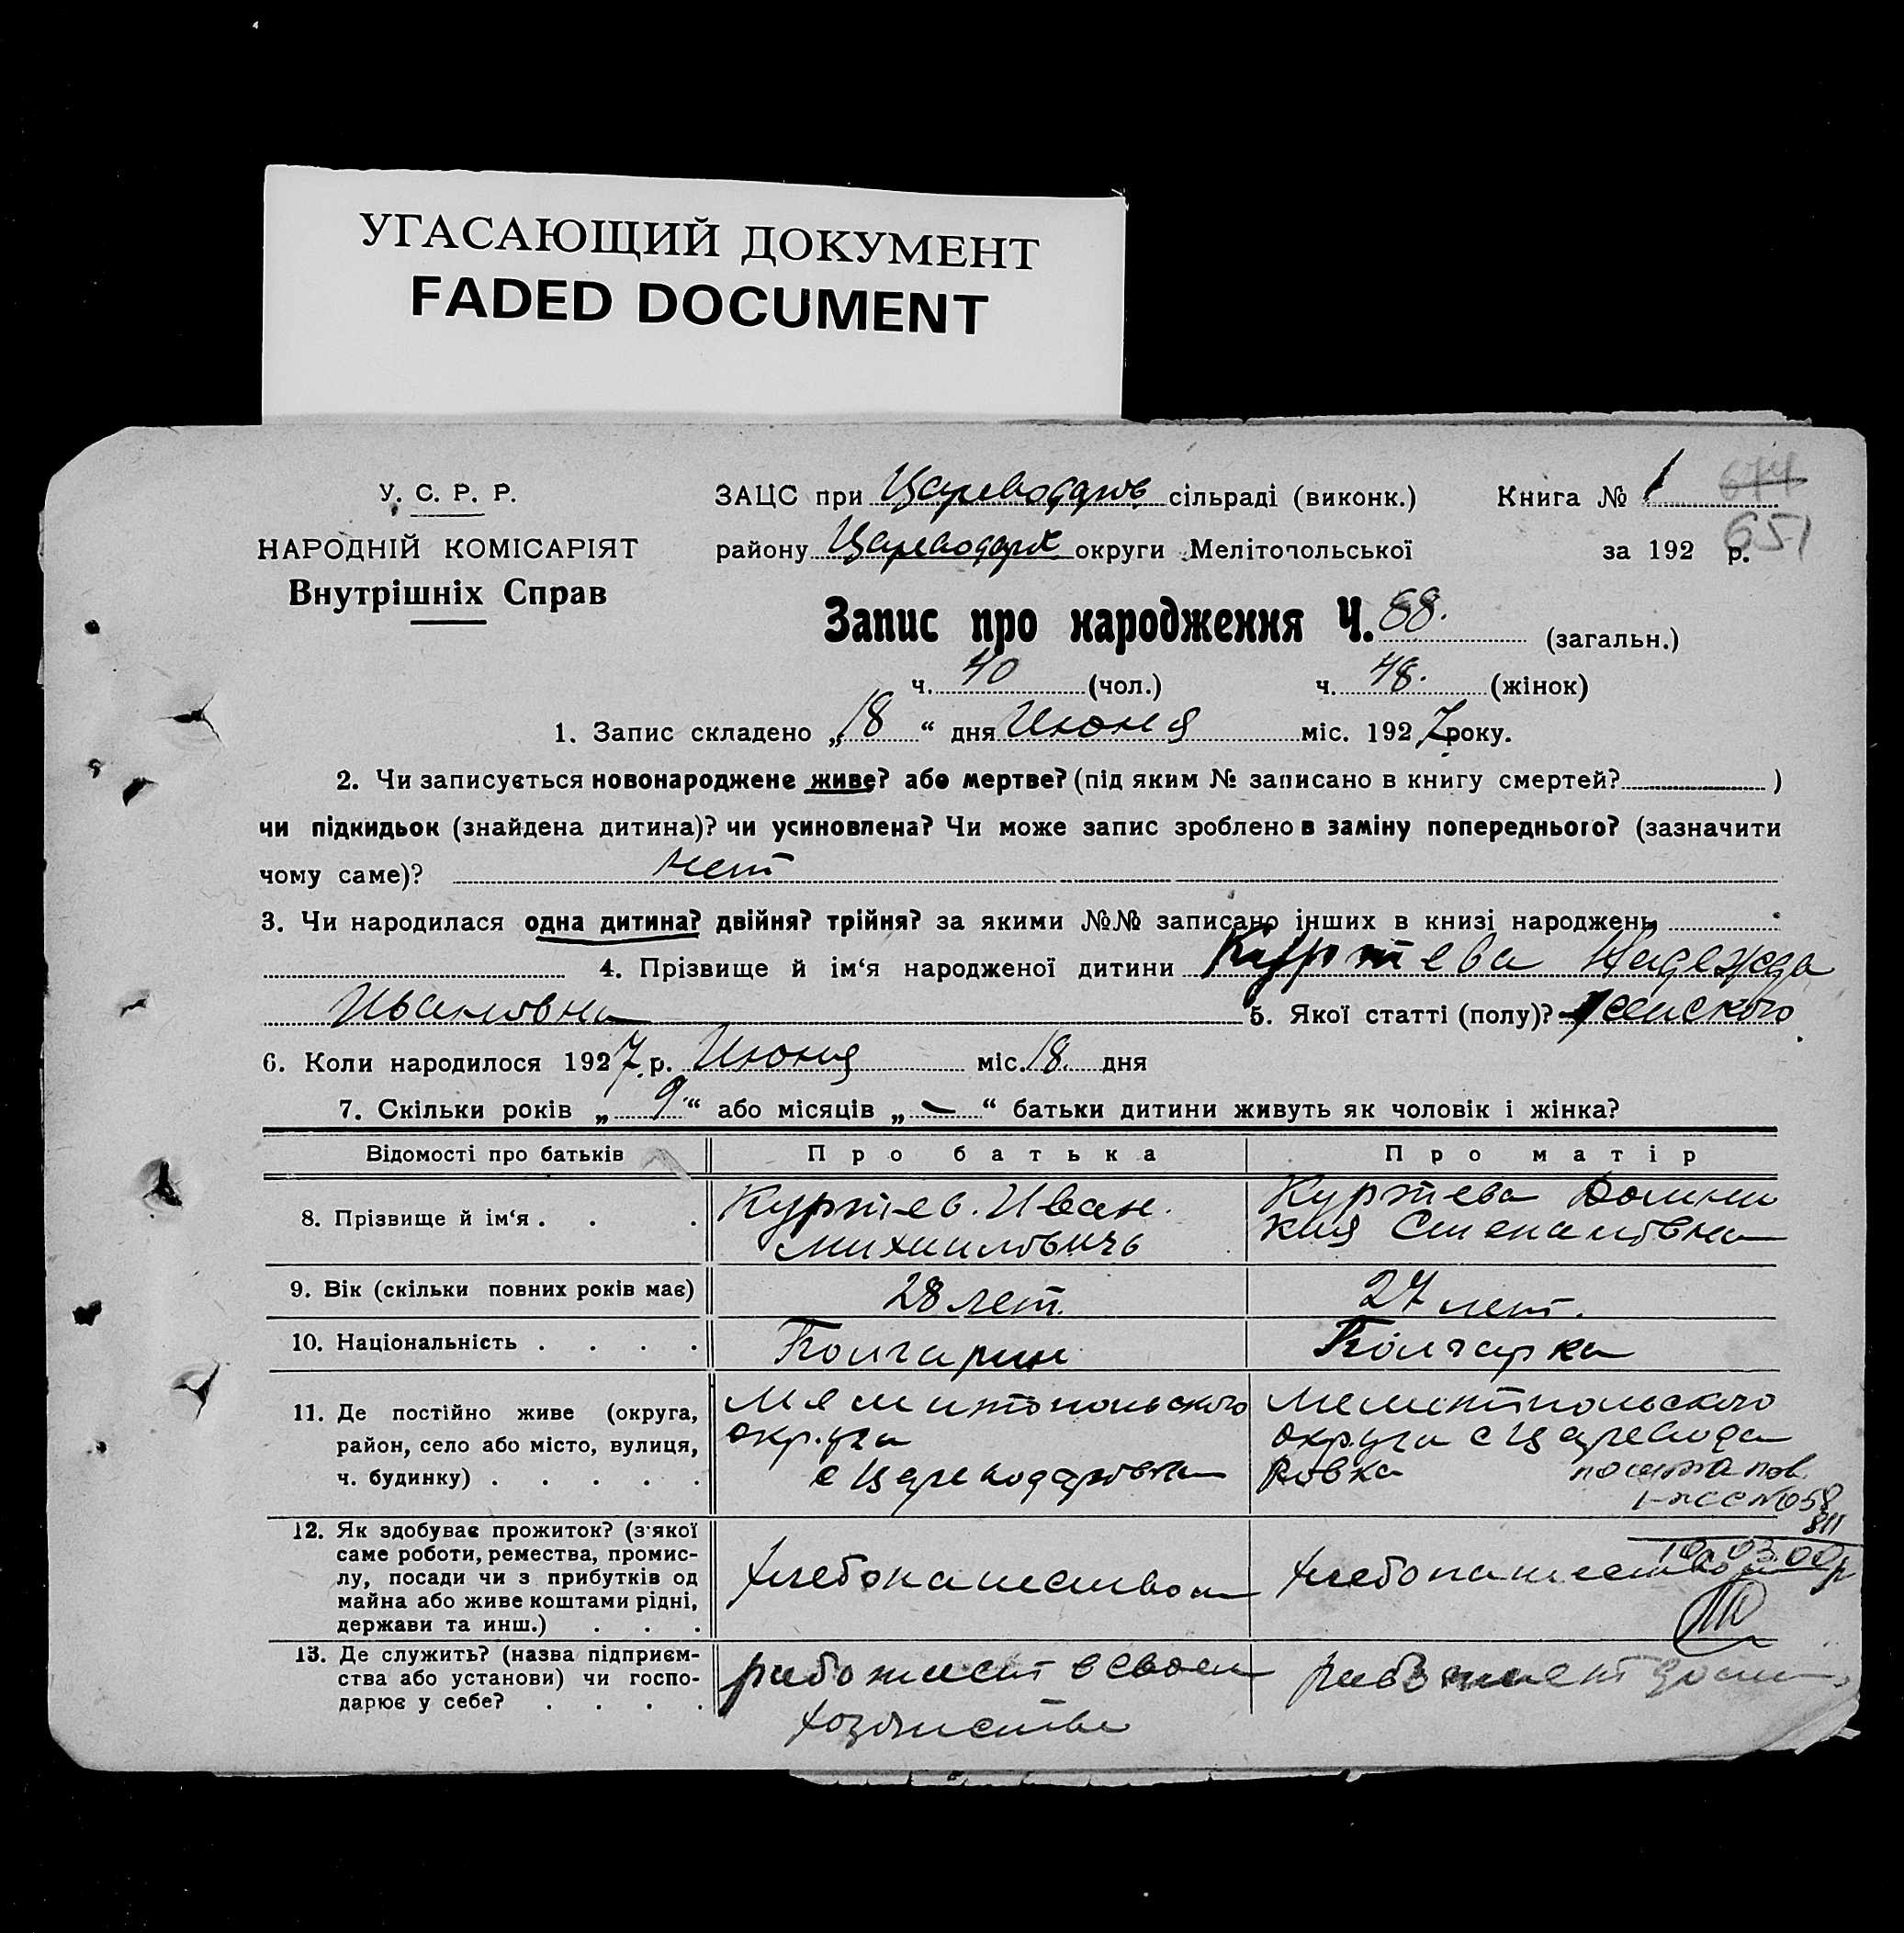 УГАСАЮЩИЙ ДОКУМЕНТ
FADED DOCUMENT
У. С. Р. Р.
НАРОДНІЙ КОМІСАРІЯТ
Внутрішніх Справ
ЗАЦС при Цареводаров сільраді (виконк.) Книга № 1 644
району Цареводарск округи Мелітопольської за 192 р. 651
Запис про народження Ч. 88. (загальн.)
ч. 40 (чол.) ч. 48. (жінок)
1. Запис складено „18“ дня Июня міс. 1927 року.
2. Чи записується новонароджене живе? або мертве? (під яким № записано в книгу смертей? )
чи підкидьок (знайдена дитина)? чи усиновлена? Чи може запис зроблено в заміну попереднього? (зазначити
чому саме)? нет
3. Чи народилася одна дитина? двійня? трійня? за якими №№ записано інших в книзі народжень
4. Прізвище й ім‘я народженої дитини Куртева Надежда
Ивановна 5. Якої статті (полу)? женского
6. Коли народилося 1927 р. Июня міс. 18. дня
7. Скільки років „9“ або місяців „—“ батьки дитини живуть як чоловік і жінка?
Відомості про батьків Про батька Про матір
8. Прізвище й ім‘я . . . Куртев. Иван. Михаиловичь
Куртева Домникия Степановна
9. Вік (скільки повних років має) 28 лет. 27 лет.
10. Національність . . . . Болгарин Болгарка
11. Де постійно живе (округа, район, село або місто, вулиця, ч. будинку) . . . . .
Мелитопольского
округа
с Цареводаровка
Мелитпольского
округа с Царевода
ровка
12. Як здобуває прожиток? (з‘якої саме роботи, ремества, промислу, посади чи з прибутків од майна або живе коштами рідні, держави та инш.) . . .
хлебопашеством хлебопашеством
13. Де служить? (назва підприємства або установи) чи господарює у себе? . . . .
работает в своем
хозяистве
работает дома